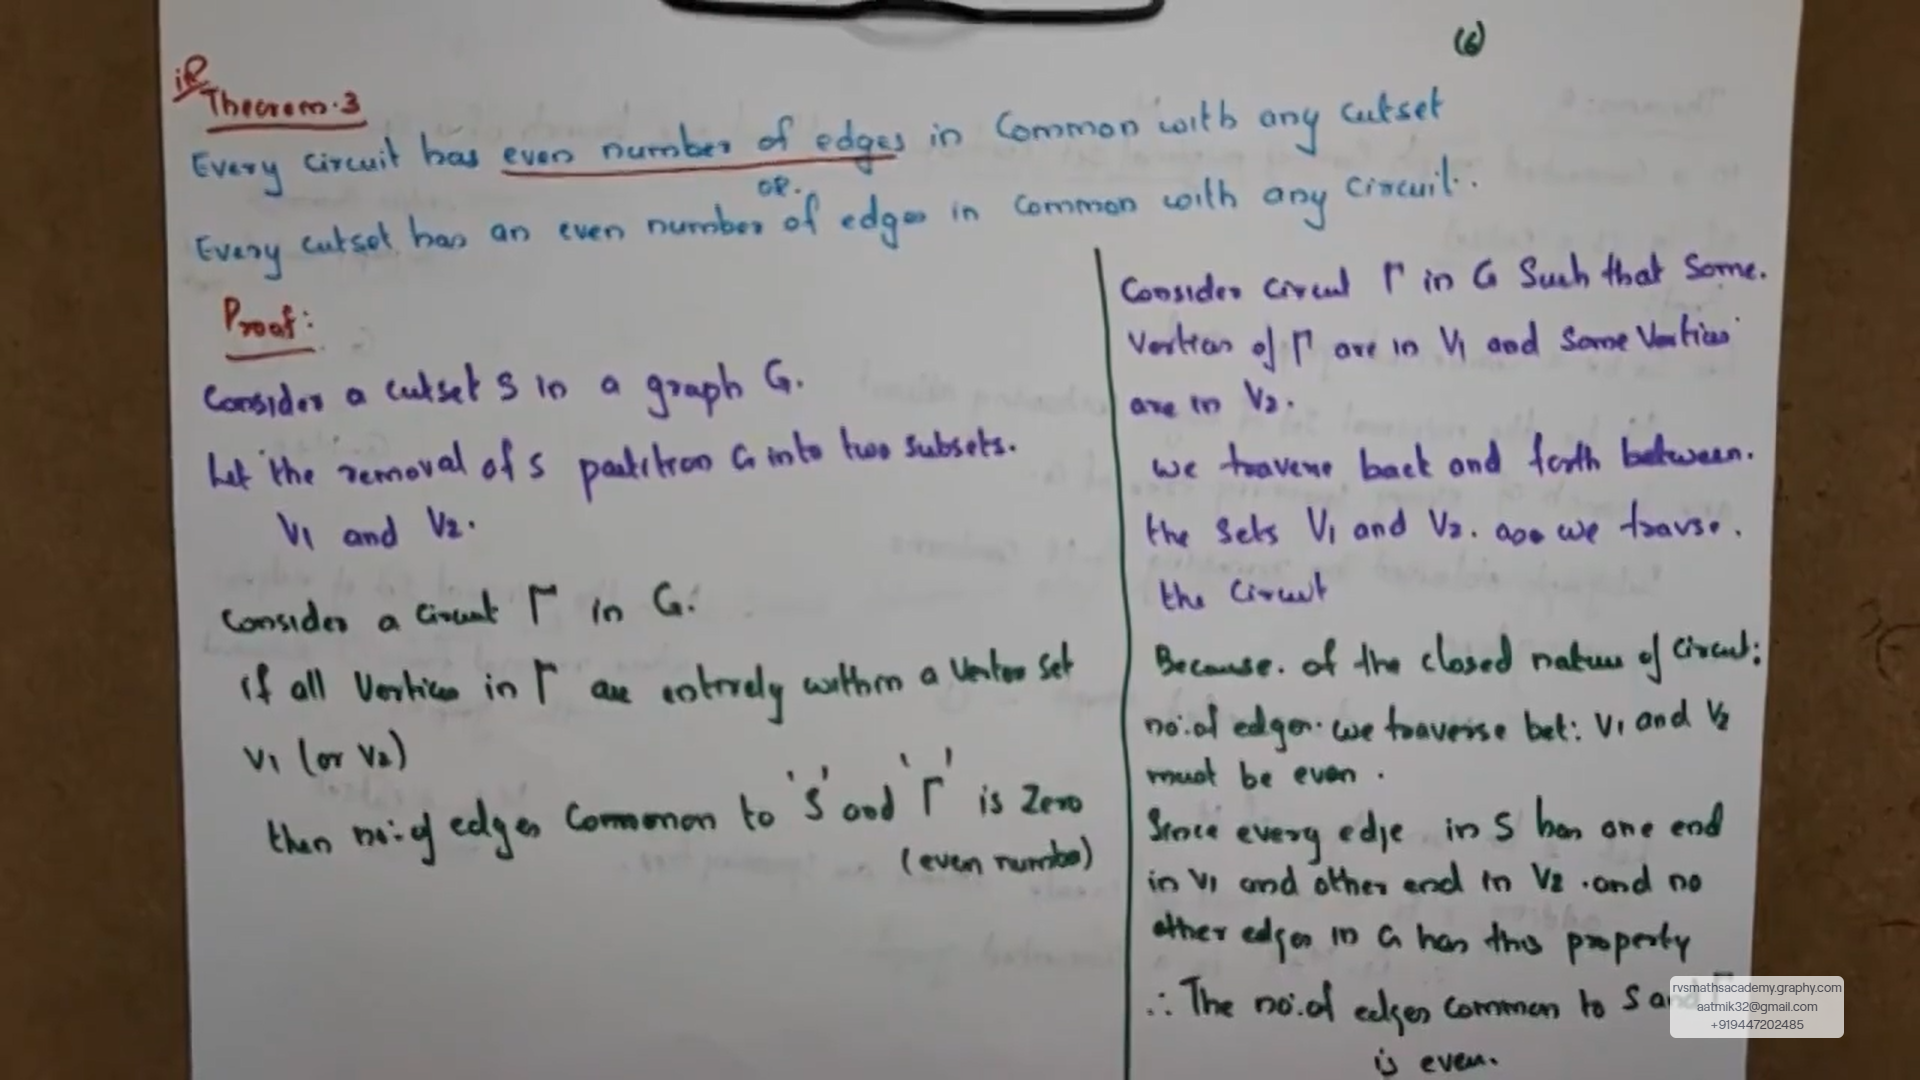 (6)
iR
Theorem.3
Every circuit has even number of edges in Common with any cutset
or.
Every cutset has an even number of edges in common with any circuit.
Proof:
Consider a cutset S in a graph G.
Let the removal of S partition G into two subsets.
V1 and V2.
Consider a circuit Γ in G.
if all Vertices in Γ are entirely within a Vertex set
V1 (or V2)
then no: of edges Common to 'S' and 'Γ' is Zero
(even number)
Consider circuit Γ in G Such that Some.
Vertices of Γ are in V1 and Some Vertices
are in V2.
we traverse back and forth between.
the sets V1 and V2. as we travse.
the circuit
Because. of the closed nature of circuit:
no: of edges. we traverse bet: V1 and V2
must be even.
Since every edge in S has one end
in V1 and other end in V2 .and no
other edges in G has this property
∴ The no: of edges common to S and Γ
is even.
rvsmathsacademy.graphy.com
aatmik32@gmail.com
+919447202485